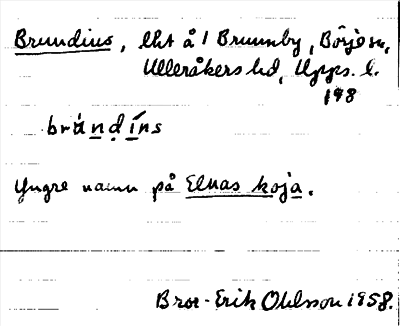 Brundius, lht å 1 Brunnby, Börje sn,
Ulleråkers hd, Upps. l.
198
brúndíns
Yngre namn på Elnas koja.
Bror-Erik Ohlsson 1958.